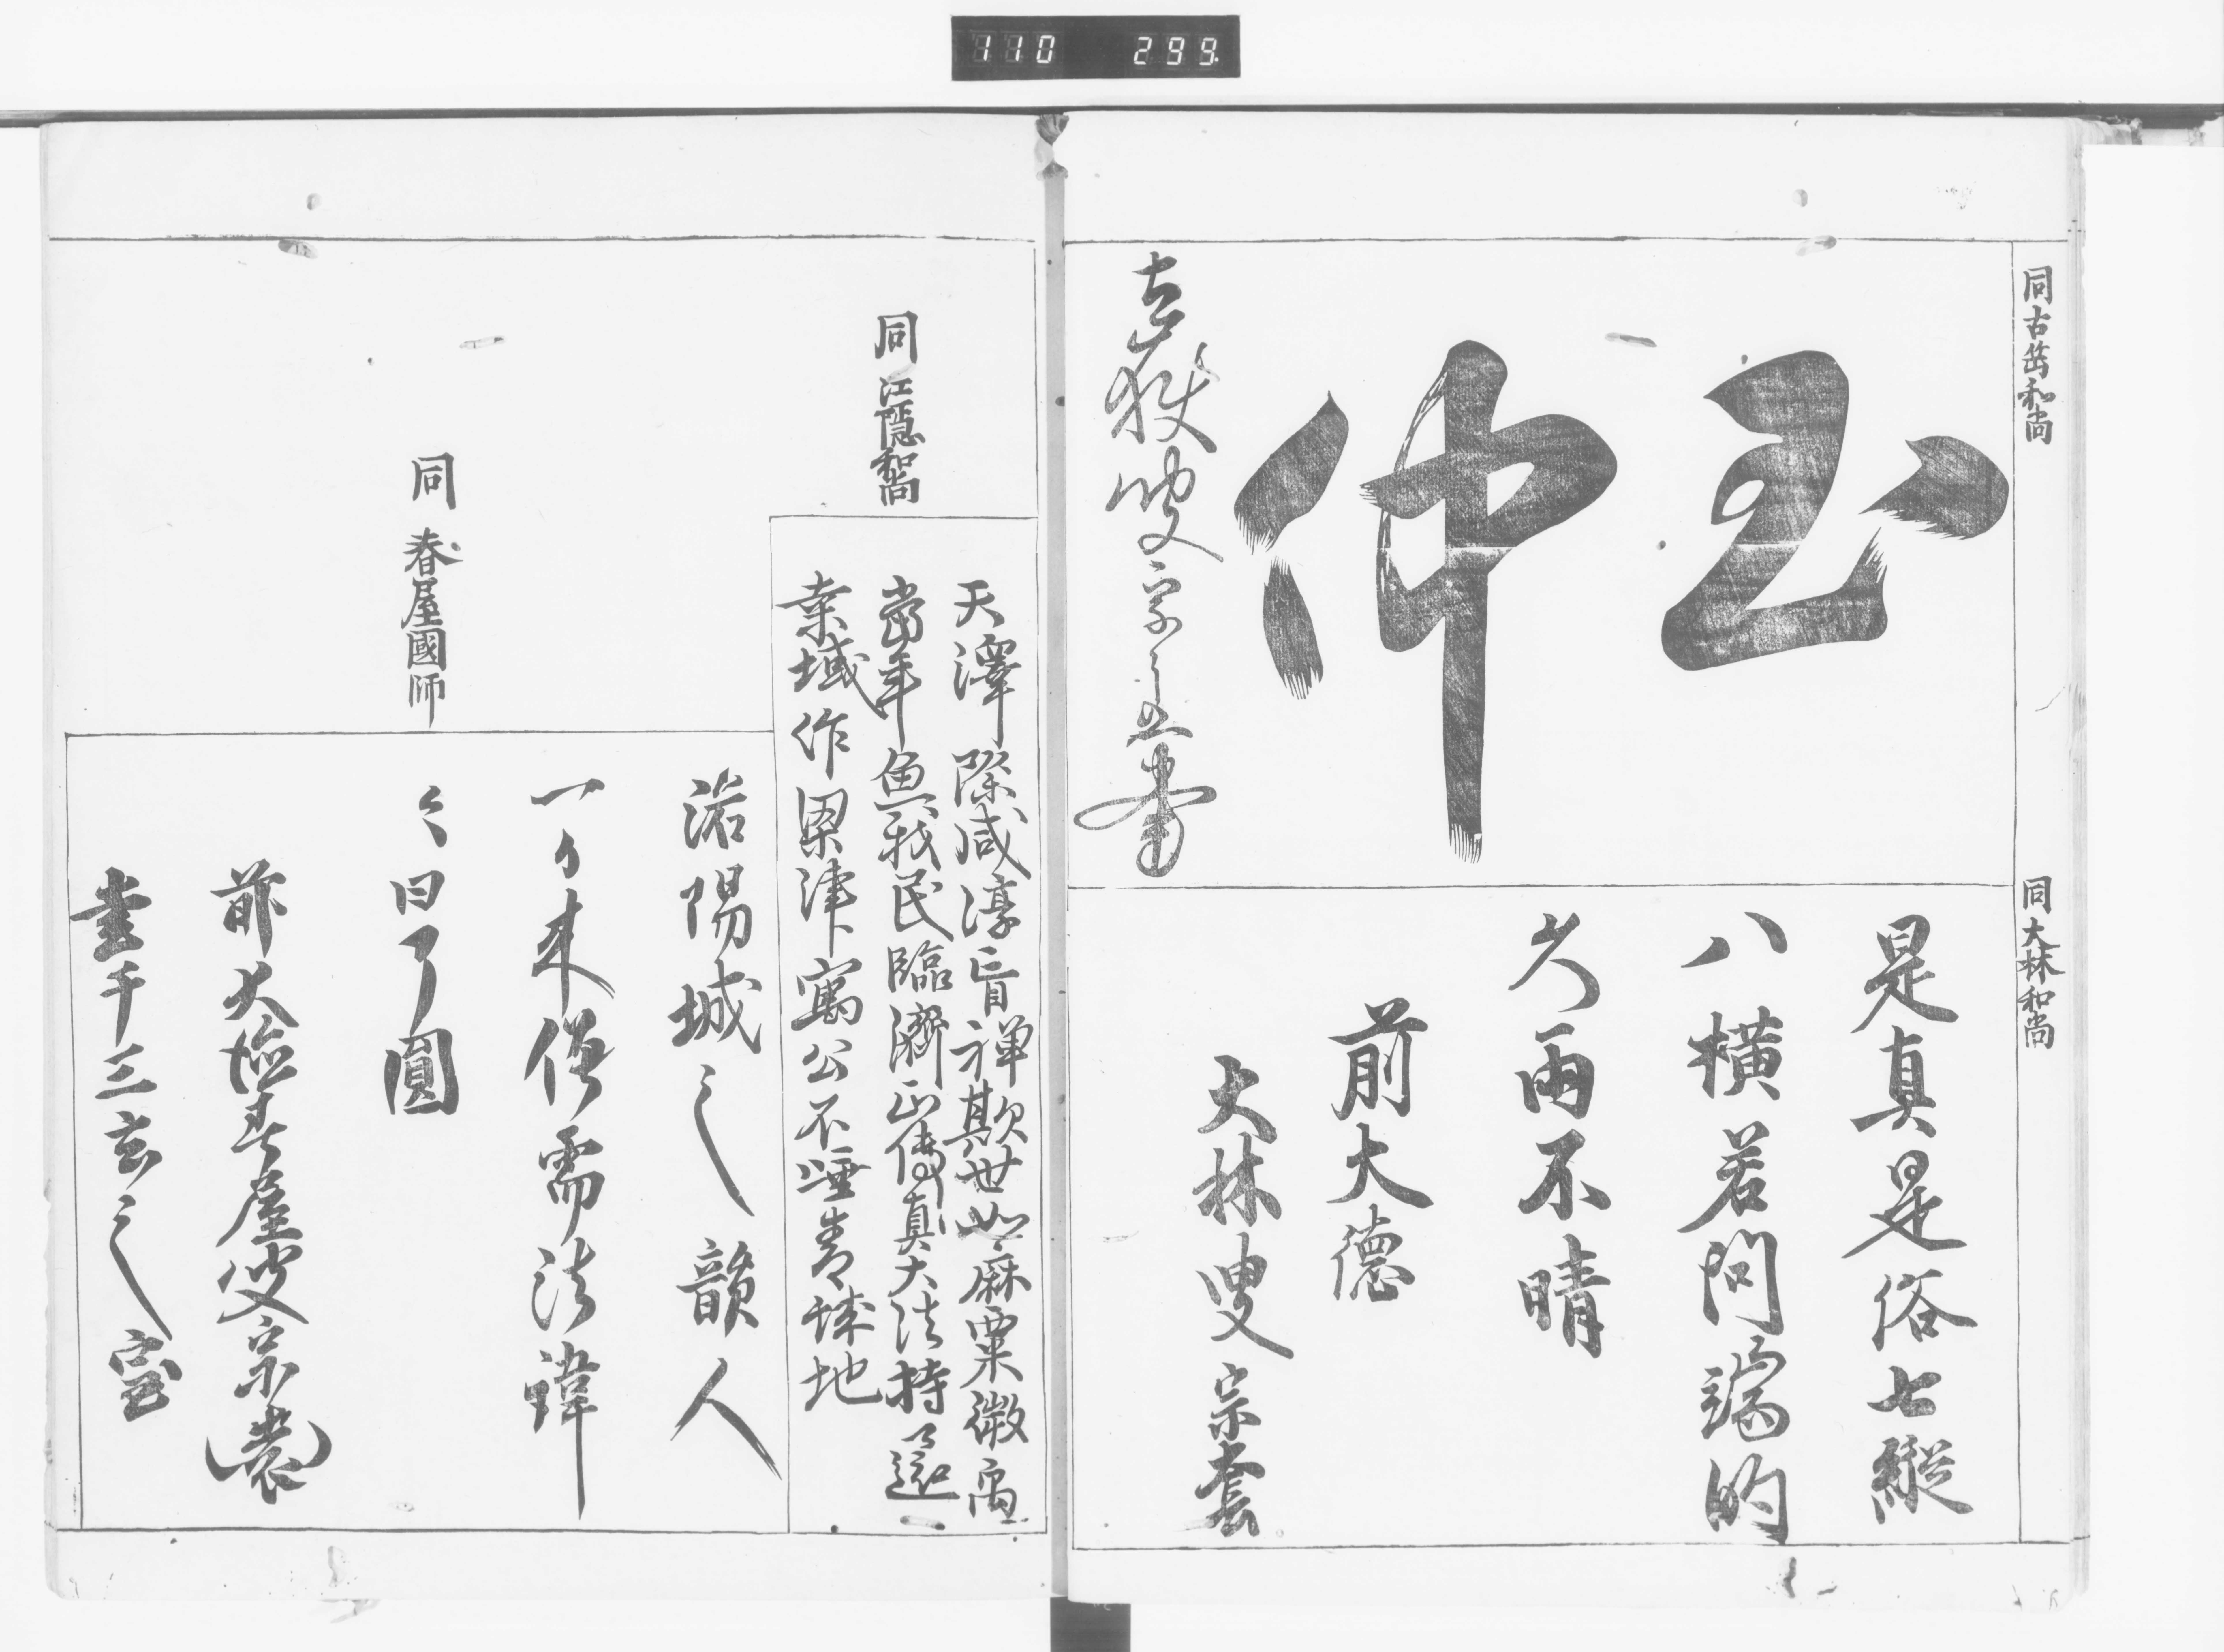 110 299
同古岳和尚
玉仲
古嶽叟宗亘書
同大林和尚
是真是俗七縱
八橫若問端的
久雨不晴
前大德
大林叟宗套
同江隱和尚
天澤際咸淳盲禪欺世如麻粟微禹
當年魚我民臨濟正傳真大法持還
桒域作梁津寓公不唾青球地
同春屋國師
洛陽城之韻人
一日来僧需法諱
々曰了圓
前大德春屋叟宗園
書于三玄之室